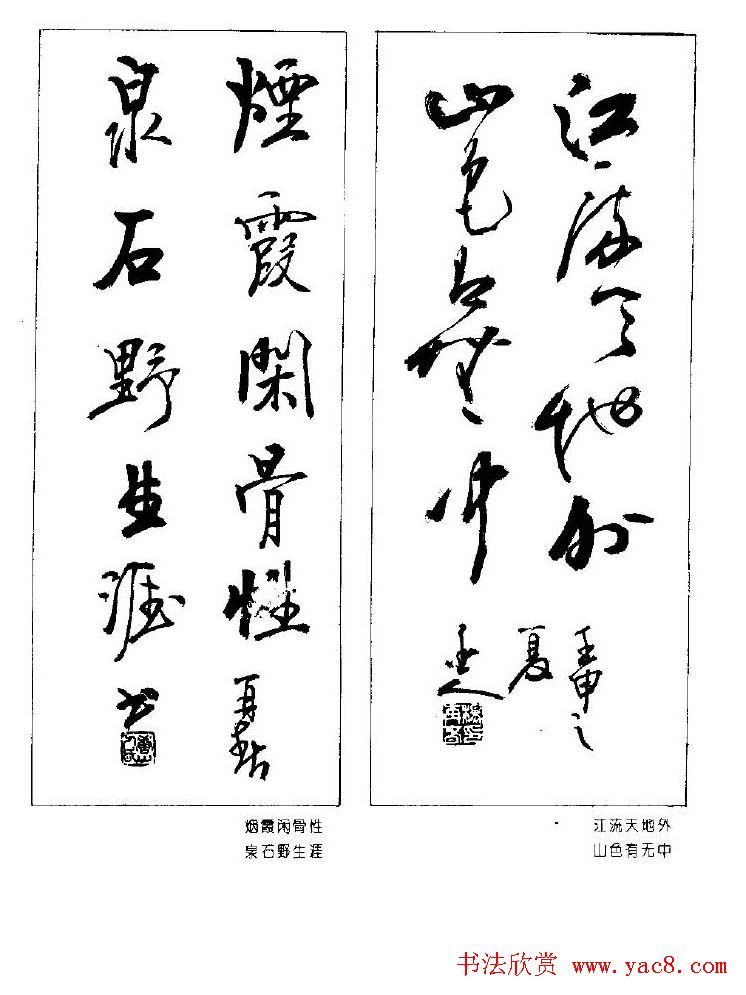 江流天地外
山色有無中
壬申之
夏
煙霞閑骨性
泉石野生涯
書
烟霞闲骨性
泉石野生涯
江流天地外
山色有无中
书法欣赏 www.yac8.com